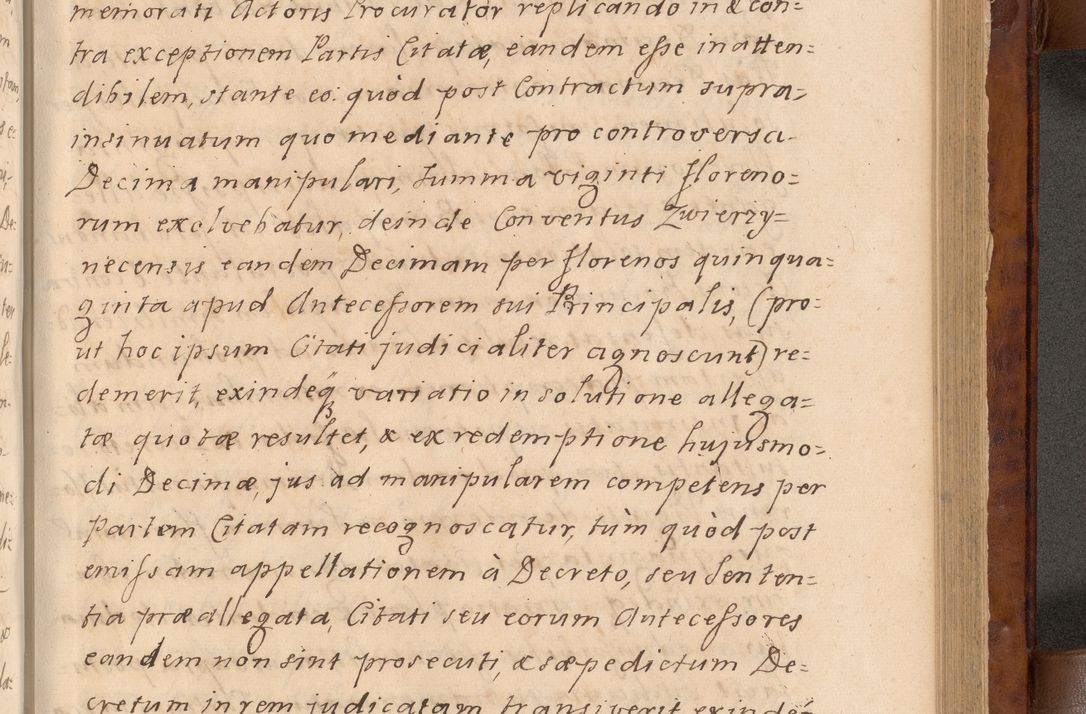 memorati Actoris Procurator replicando in & con=
tra exceptionem Partis Citatæ, eandem esse inatten=
dibilem, stante eo: quòd post Contractum supra=
insinuatum quo mediante pro controversa
Decima manipulari, summa viginti floreno=
rum exolvebatur, deinde Conventus Zwierzy=
necensis eandem Decimam per florenos quinqua=
ginta apud Antecessorem sui Principalis, (pro=
ut hoc ipsum Citati judicialiter agnoscunt) re=
demerit, exindeq́ variatio in solutione allega=
tæ quotæ resultet, & ex redemptione hujusmo=
di Decimæ, jus ad manipularem competens per
Partem Citatam recognoscatur, tùm quòd post
emissam appellationem à Decreto, seu Senten=
tia præallegata, Citati seu eorum Antecessores
eandem non sint prosecuti, & sæpedictum De=
cretum in rem judicatam transiverit exinde=